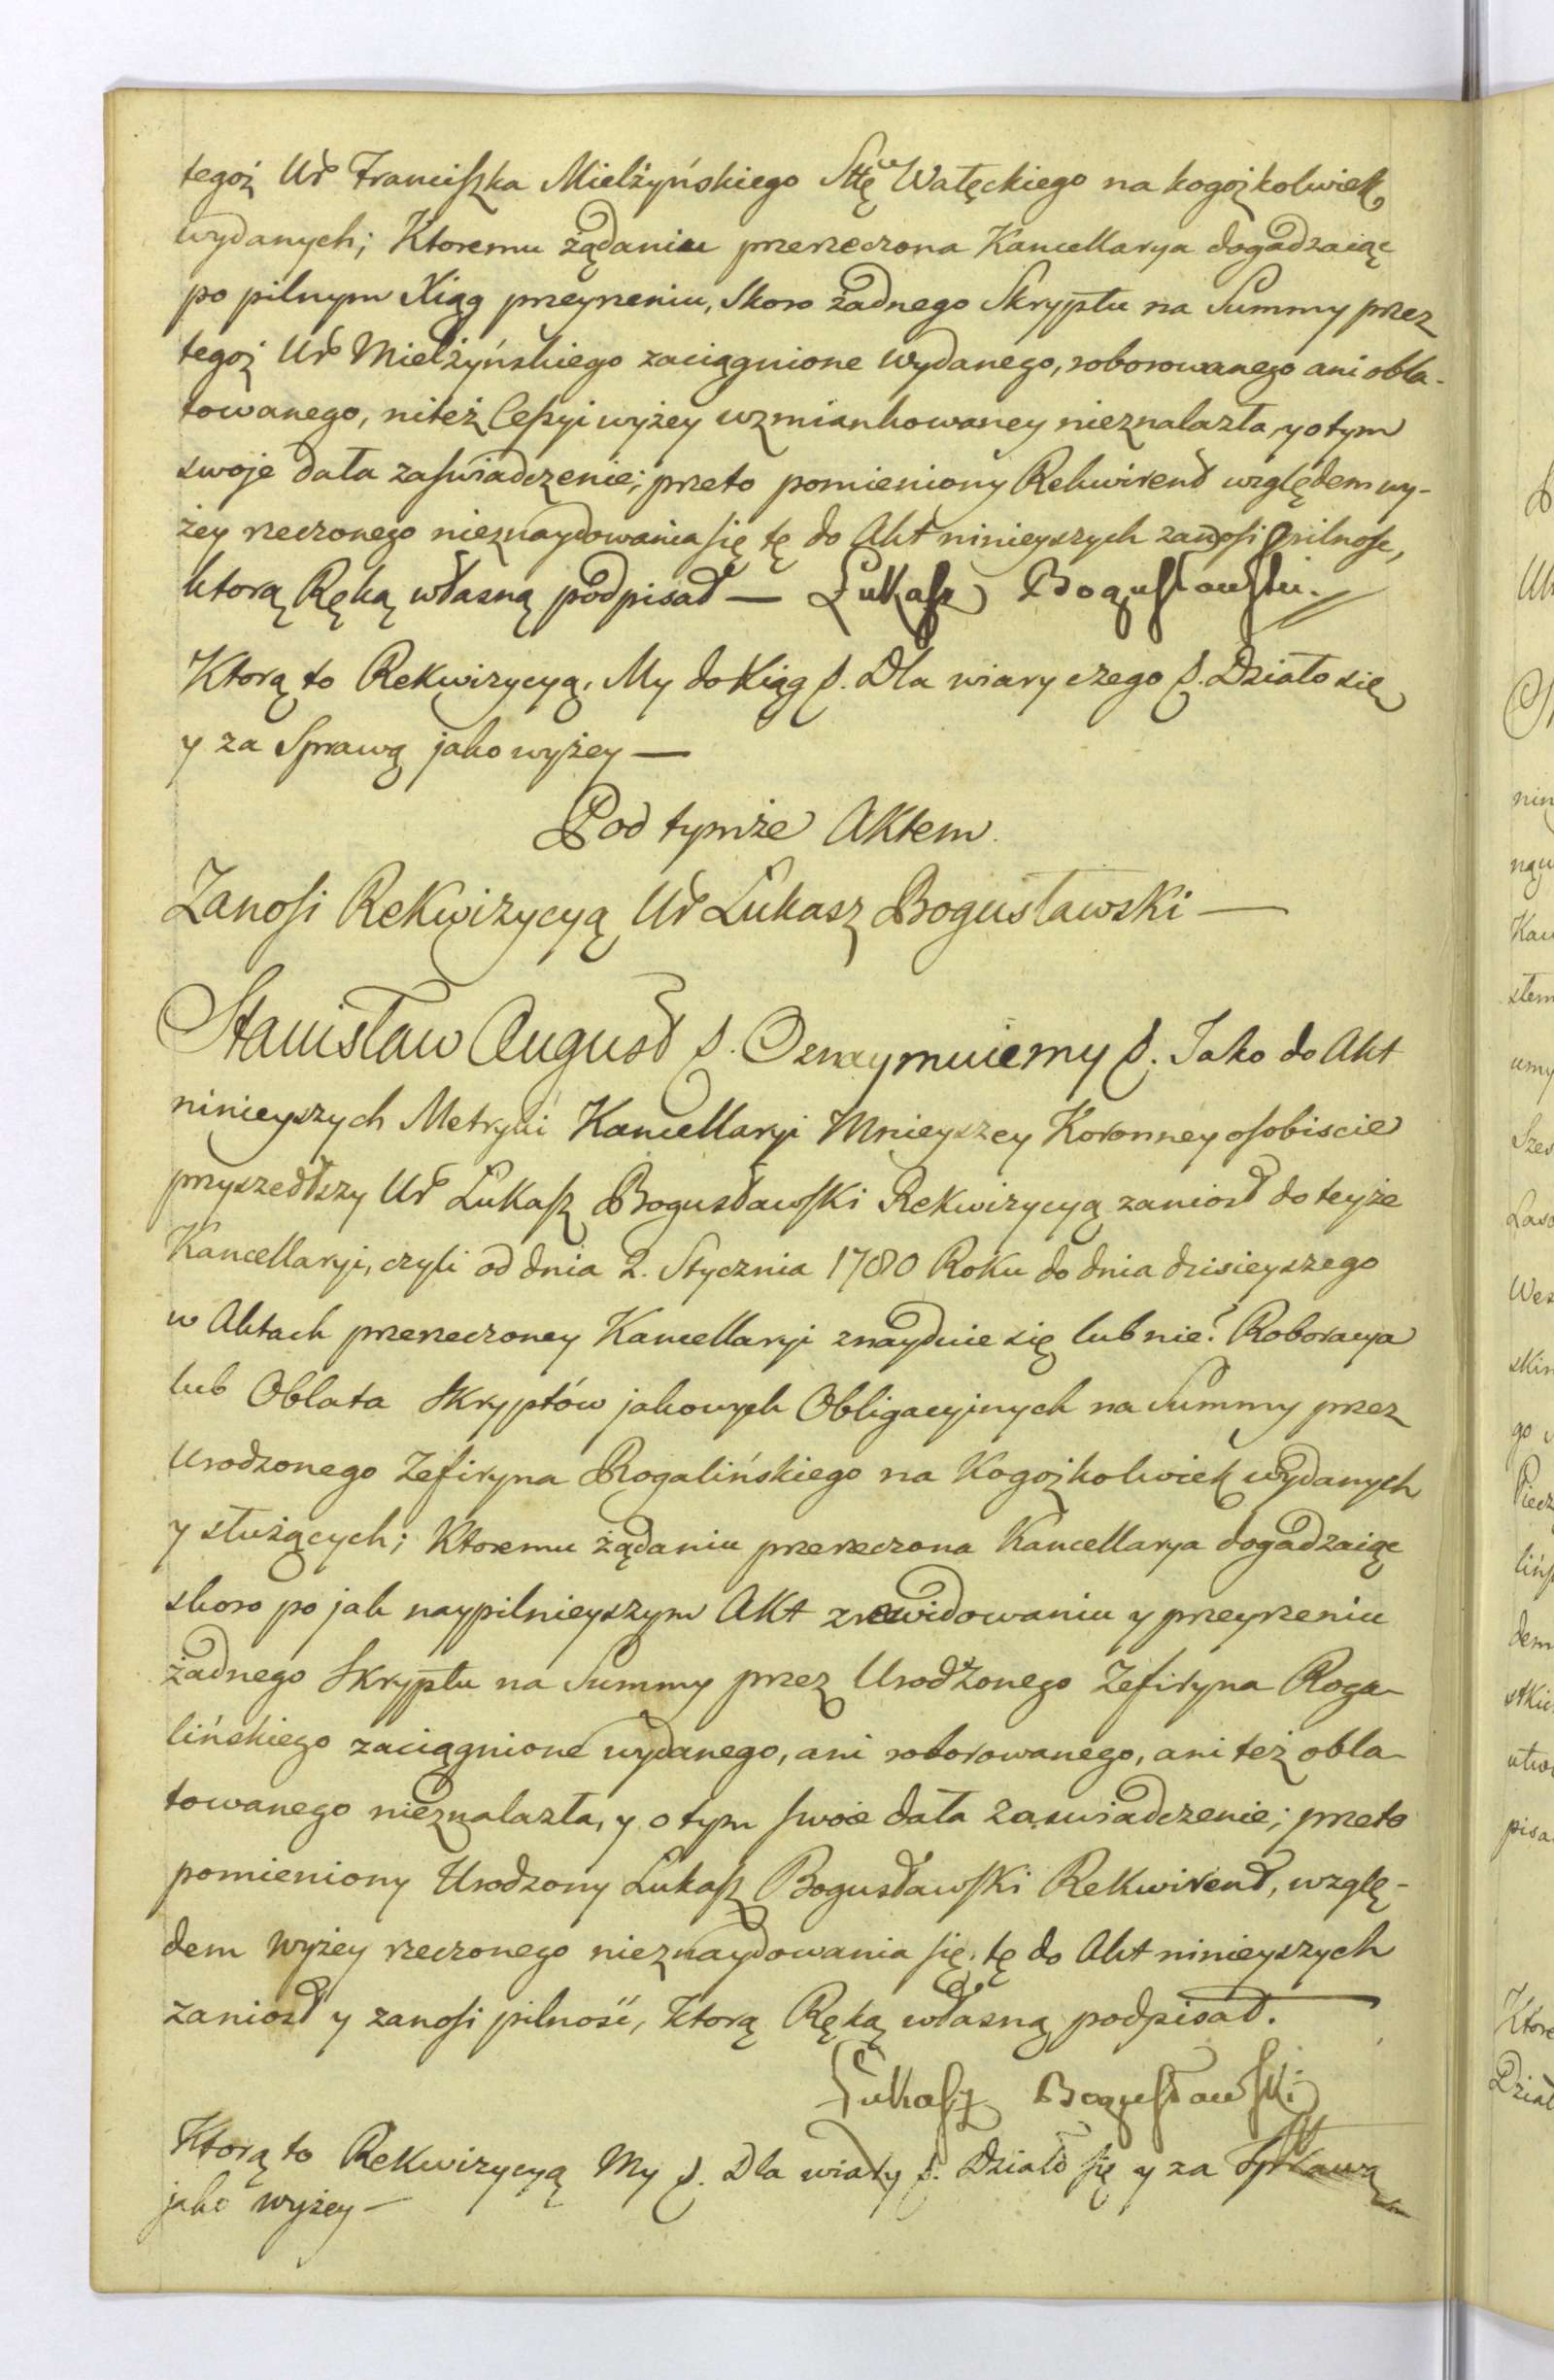 tegoż Ur Franciszka Mielżyńskiego Sttę Wałęckiego na kogożkolwiek
wydanych; Ktoremu żądaniu przerzeczona Kancellarya dogadzaiąc
po pilnym Xiąg przeyrzeniu, Skoro żadnego Skryptu na Summy przez
tegoż Ur Mielżyńskiego zaciągnione wydanego, roborowanego ani obla-
towanego, niteż Cessyi wyżey wzmiankowaney nieznalazła, y o tym
swoje dała zaświadczenie; przeto pomieniony Rekwirent względem wy-
żey rzeczonego nieznaydowania się tę do Akt ninieyszych zanosi pilnosc,
ktorą Ręką własną podpisał — Łukasz Bogusławski.
Ktorą to Rekwizycyą, My do Xiąg p. Dla wiary czego p. Działo się
y za Sprawą jako wyżey —
Pod tymże Aktem.
Zanosi Rekwizycyą Ur Łukasz Bogusławski —
Stanisław August p. Oznaymuiemy p. Jako do Akt
ninieyszych Metryki Kancellaryi Mnieyszey Koronney osobiscie
przyszedłszy Ur Łukasz Bogusławski Rekwizycyą zaniosł do teyże
Kancellaryi, czyli od dnia 2. Stycznia 1780 Roku do dnia dzisieyszego
w Aktach przerzeczoney Kancellaryi znayduie się lub nie? Roboracya
lub Oblata Skryptów jakowych Obligacyinych na Summy przez
Urodzonego Zefiryna Rogalińskiego na Kogożkolwiek wydanych
y służących; Ktoremu żądaniu przerzeczona Kancellarya dogadzaiąc
skoro po jak naypilnieyszym Akt zrewidowaniu y przeyrzeniu
żadnego Skryptu na Summy przez Urodzonego Zefiryna Roga-
lińskiego zaciągnione wydanego, ani roborowanego, ani też obla-
towanego nieznalazła, y o tym swoie dała zaswiadczenie; przeto
pomieniony Urodzony Łukasz Bogusławski Rekwirent, wzglę-
dem wyżey rzeczonego nieznaydowania się, tę do Akt ninieyszych
zaniosł y zanosi pilność, ktorą Ręką własną podpisał.
Łukasz Bogusławski
Ktorą to Rekwizycyą My p. Dla wiary p. Działo się y za Sprawą
jako wyżey —